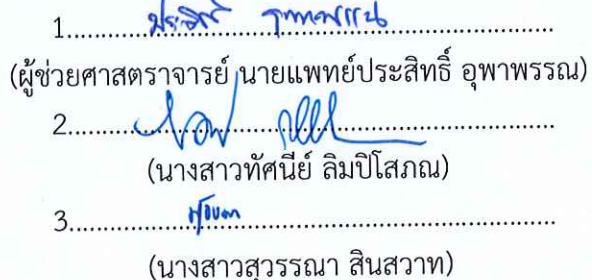 1. ประสิทธิ์ อุพาพรรณ
(ผู้ช่วยศาสตราจารย์ นายแพทย์ประสิทธิ์ อุพาพรรณ)
2.
(นางสาวทัศนีย์ ลิมปิโสภณ)
3.
(นางสาวสุวรรณา สินสวาท)